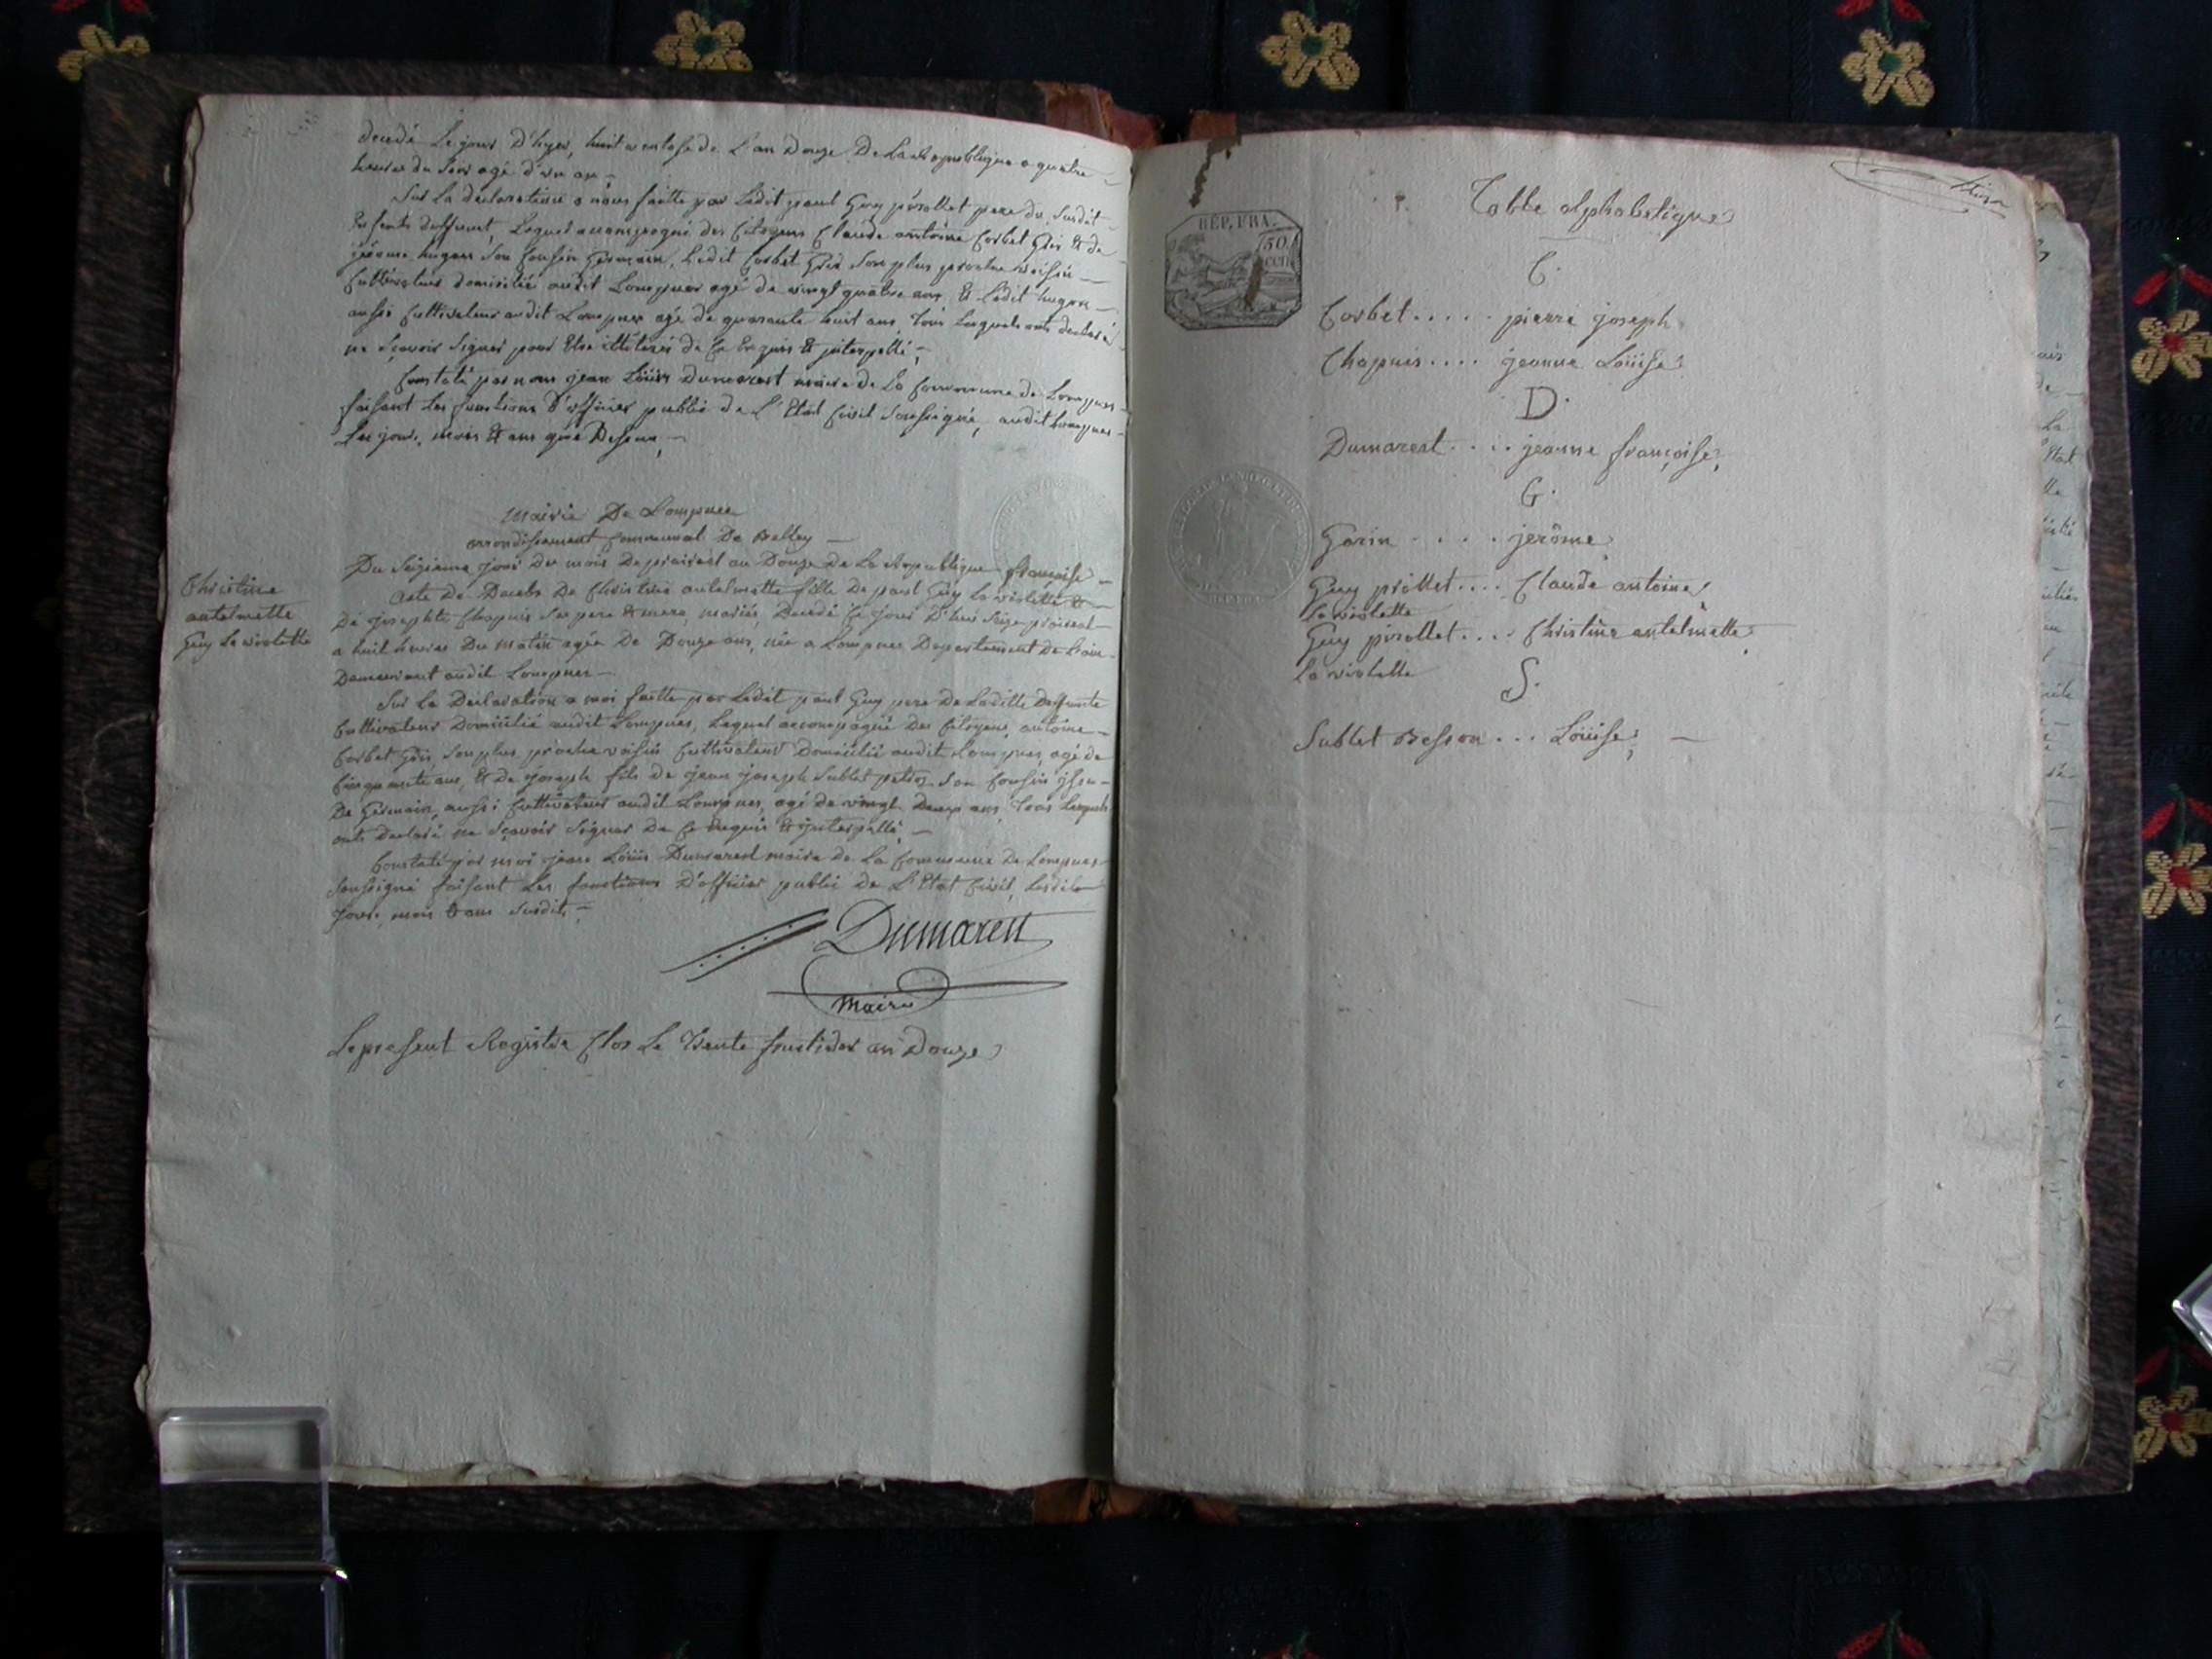 decedé Le jour D'hyer, huit ventose de L'an Douze De La Republique a quatre
heures du Soir agé d'un an,
Sur La declaration a nous faitte par Ledit paul Guy pirollet pere du Susdit
Enfents deffunt, Lequel accompagné des Citoyens Claude antoine Corbet Gris & de
jérome hugon Son Cousin Germain, Ledit Corbet Gris Son plus proche voisin
Cultivateur domicilié audit Lompnes agé de vingt quatre ans & Ledit hugon
aussi Cultivateur audit Lompnes agé de quarante huit ans, Tous Lesquels onts declaré
ne Sçavoir Signer pour Etre illiterés de Ce Enquis & interpellé,
Constaté par nous jean Loüis Dumarest maire de La Commune de Lompnes
faisant Les fonctions D'officier public de L'Etat Civil Soussigné, audit Lompnes
Les jour, mois & ans que Dessus,
Mairie De Lompnes
arrondissement Communal De Belley
Du Seizieme jour du mois De prairial an Douze de La Republique françoise
Christine
antelmette
Guy La violette
acte de Decebs De Christine antelmette fille De paul Guy La violette &
De josephte Chapuis Ses pere & mere, mariés, Decedé Ce jour D'hui Seize prairial
a huit heures Du matin agée De Douze ans, née a Lompnes Departement De L'ain
Demeurant audit Lompnes
Sur La Declaration a moi faitte par Ledit paul Guy pere De Laditte Deffunte
Cultivateur Domicilié audit Lompnes, Lequel accompagné Des Citoyens antoine
Corbet Gris, Son plus proche voisin Cultivateur Domicilié audit Lompnes, agé de
Cinquante ans, & de joseph fils de jean joseph Sublet Son Cousin jssu
De Germain, aussi Cultivateur audit Lompnes, agé de vingt Deux ans, Tous Lesquels
onts Declaré ne Sçavoir Signer De Ce Enquis & jnterpellé,
Constaté par moi jean Loüis Dumarest maire de La Commune De Lompnes
Soussigné faisant Les fonctions D'officier public de L'Etat Civil, Lesdits
Jour, mois & ans Susdits,
Dumarest
Maire
Le present Registre Clos Le Trente fructidor an Douze
Table alphabetique
REP. FRA.
50
CEN
C.
Corbet..... pierre joseph
Chapuis.... jeanne Loüise
D.
Dumarest.... jeanne françoise,
G.
Garin.... jerôme,
Guy pirollet.... Claude antoine,
La violette
Guy pirollet.... Christine antelmette,
La violette
S.
Sublet Besson... Loüise,